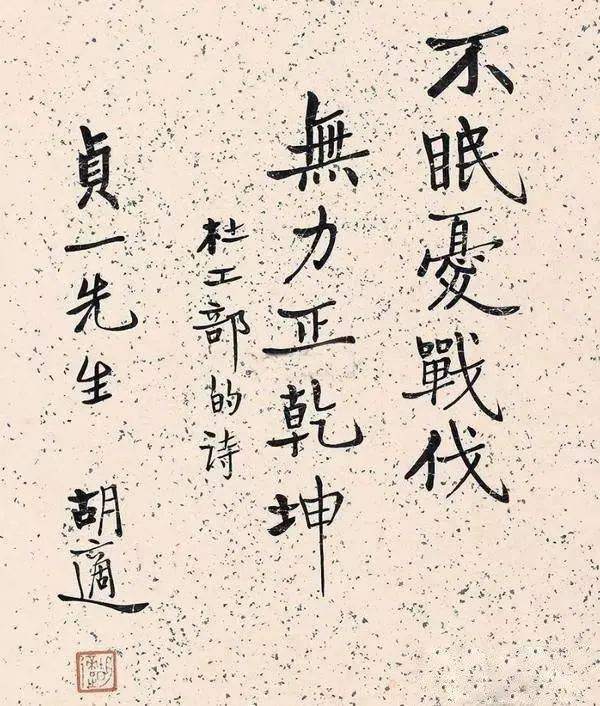 不眠憂戰伐
無力正乾坤
杜工部的诗
貞一先生 胡適